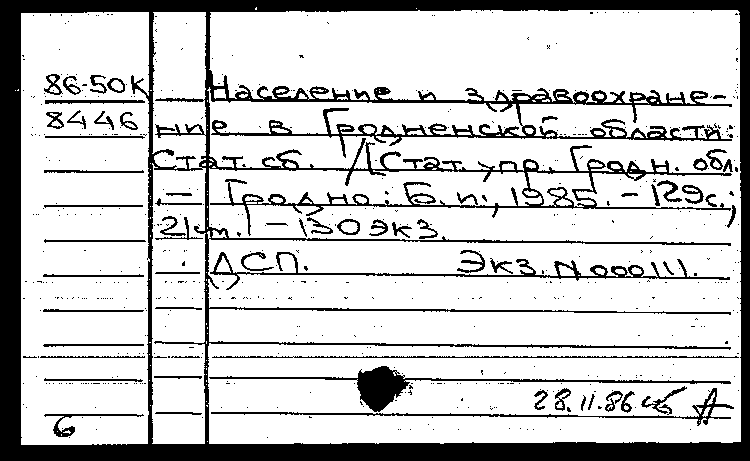 86-50К Население и здравоохране-
8446 ние в Гродненской области:
Стат. сб. / [Стат. упр. Гродн. обл.
.— Гродно : Б. и., 1985. — 129с.;
21см. — 130 экз.
ДСП. Экз. N 000111.
28.11.86
6